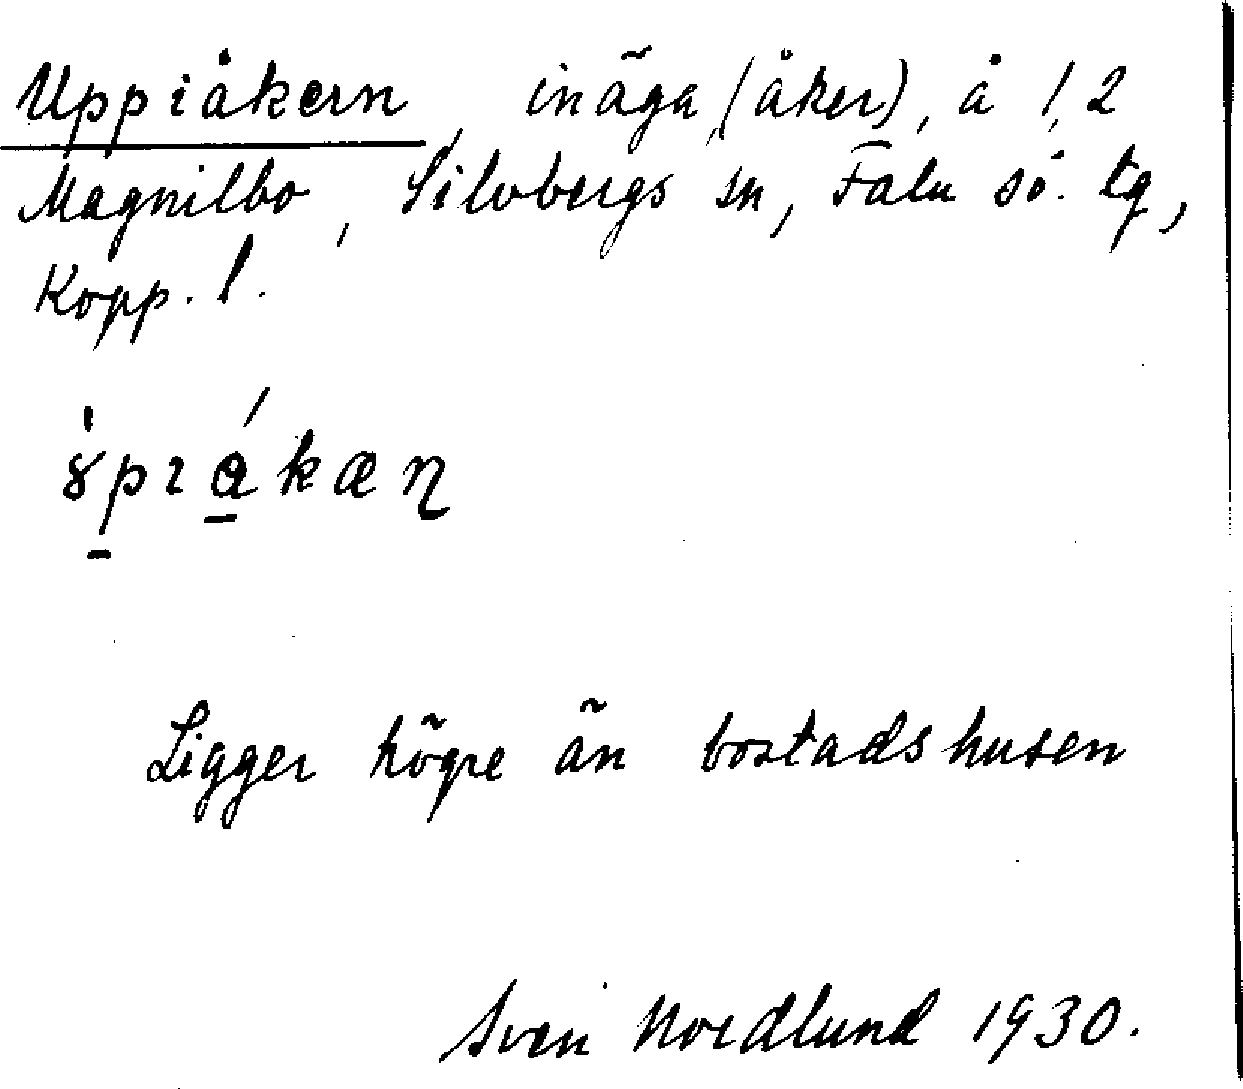 Uppiåkern, inäga (åker), å 1, 2
Magnilbo, Silvbergs sn, Falu sö. tg,
Kopp. l.
Ligger högre än bostadshusen
Sven Nordlund 1930.